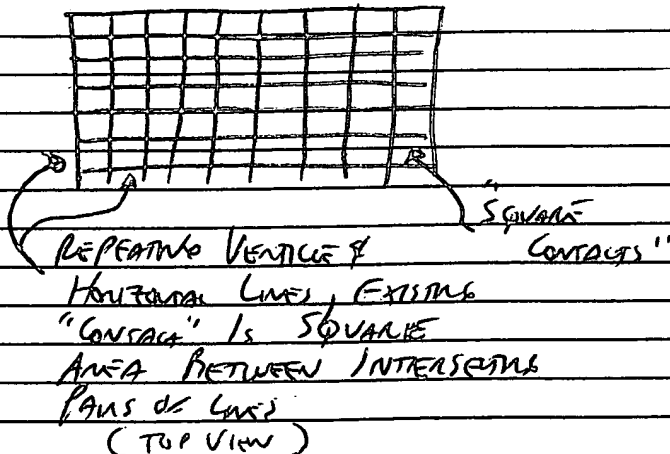 "SQUARE
CONTACTS"
REPEATING VERTICLE &
HORIZONTAL LINES, EXISTING
"CONTACT" IS SQUARE
AREA BETWEEN INTERSECTING
PAIRS OF LINES
(TOP VIEW)